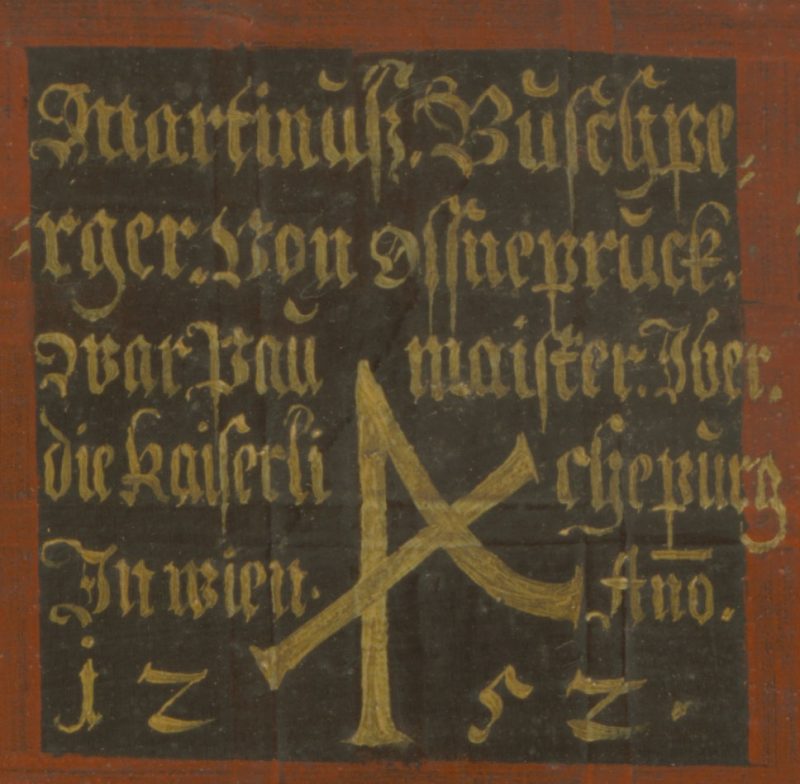 Martinůsz. Bůschpe⸗
⸗rger. Von Ossneprůck.
war Paů maister. Jber.
die kaiserli chepůrg
Jn wien. An̄o.
1 2 5 2.